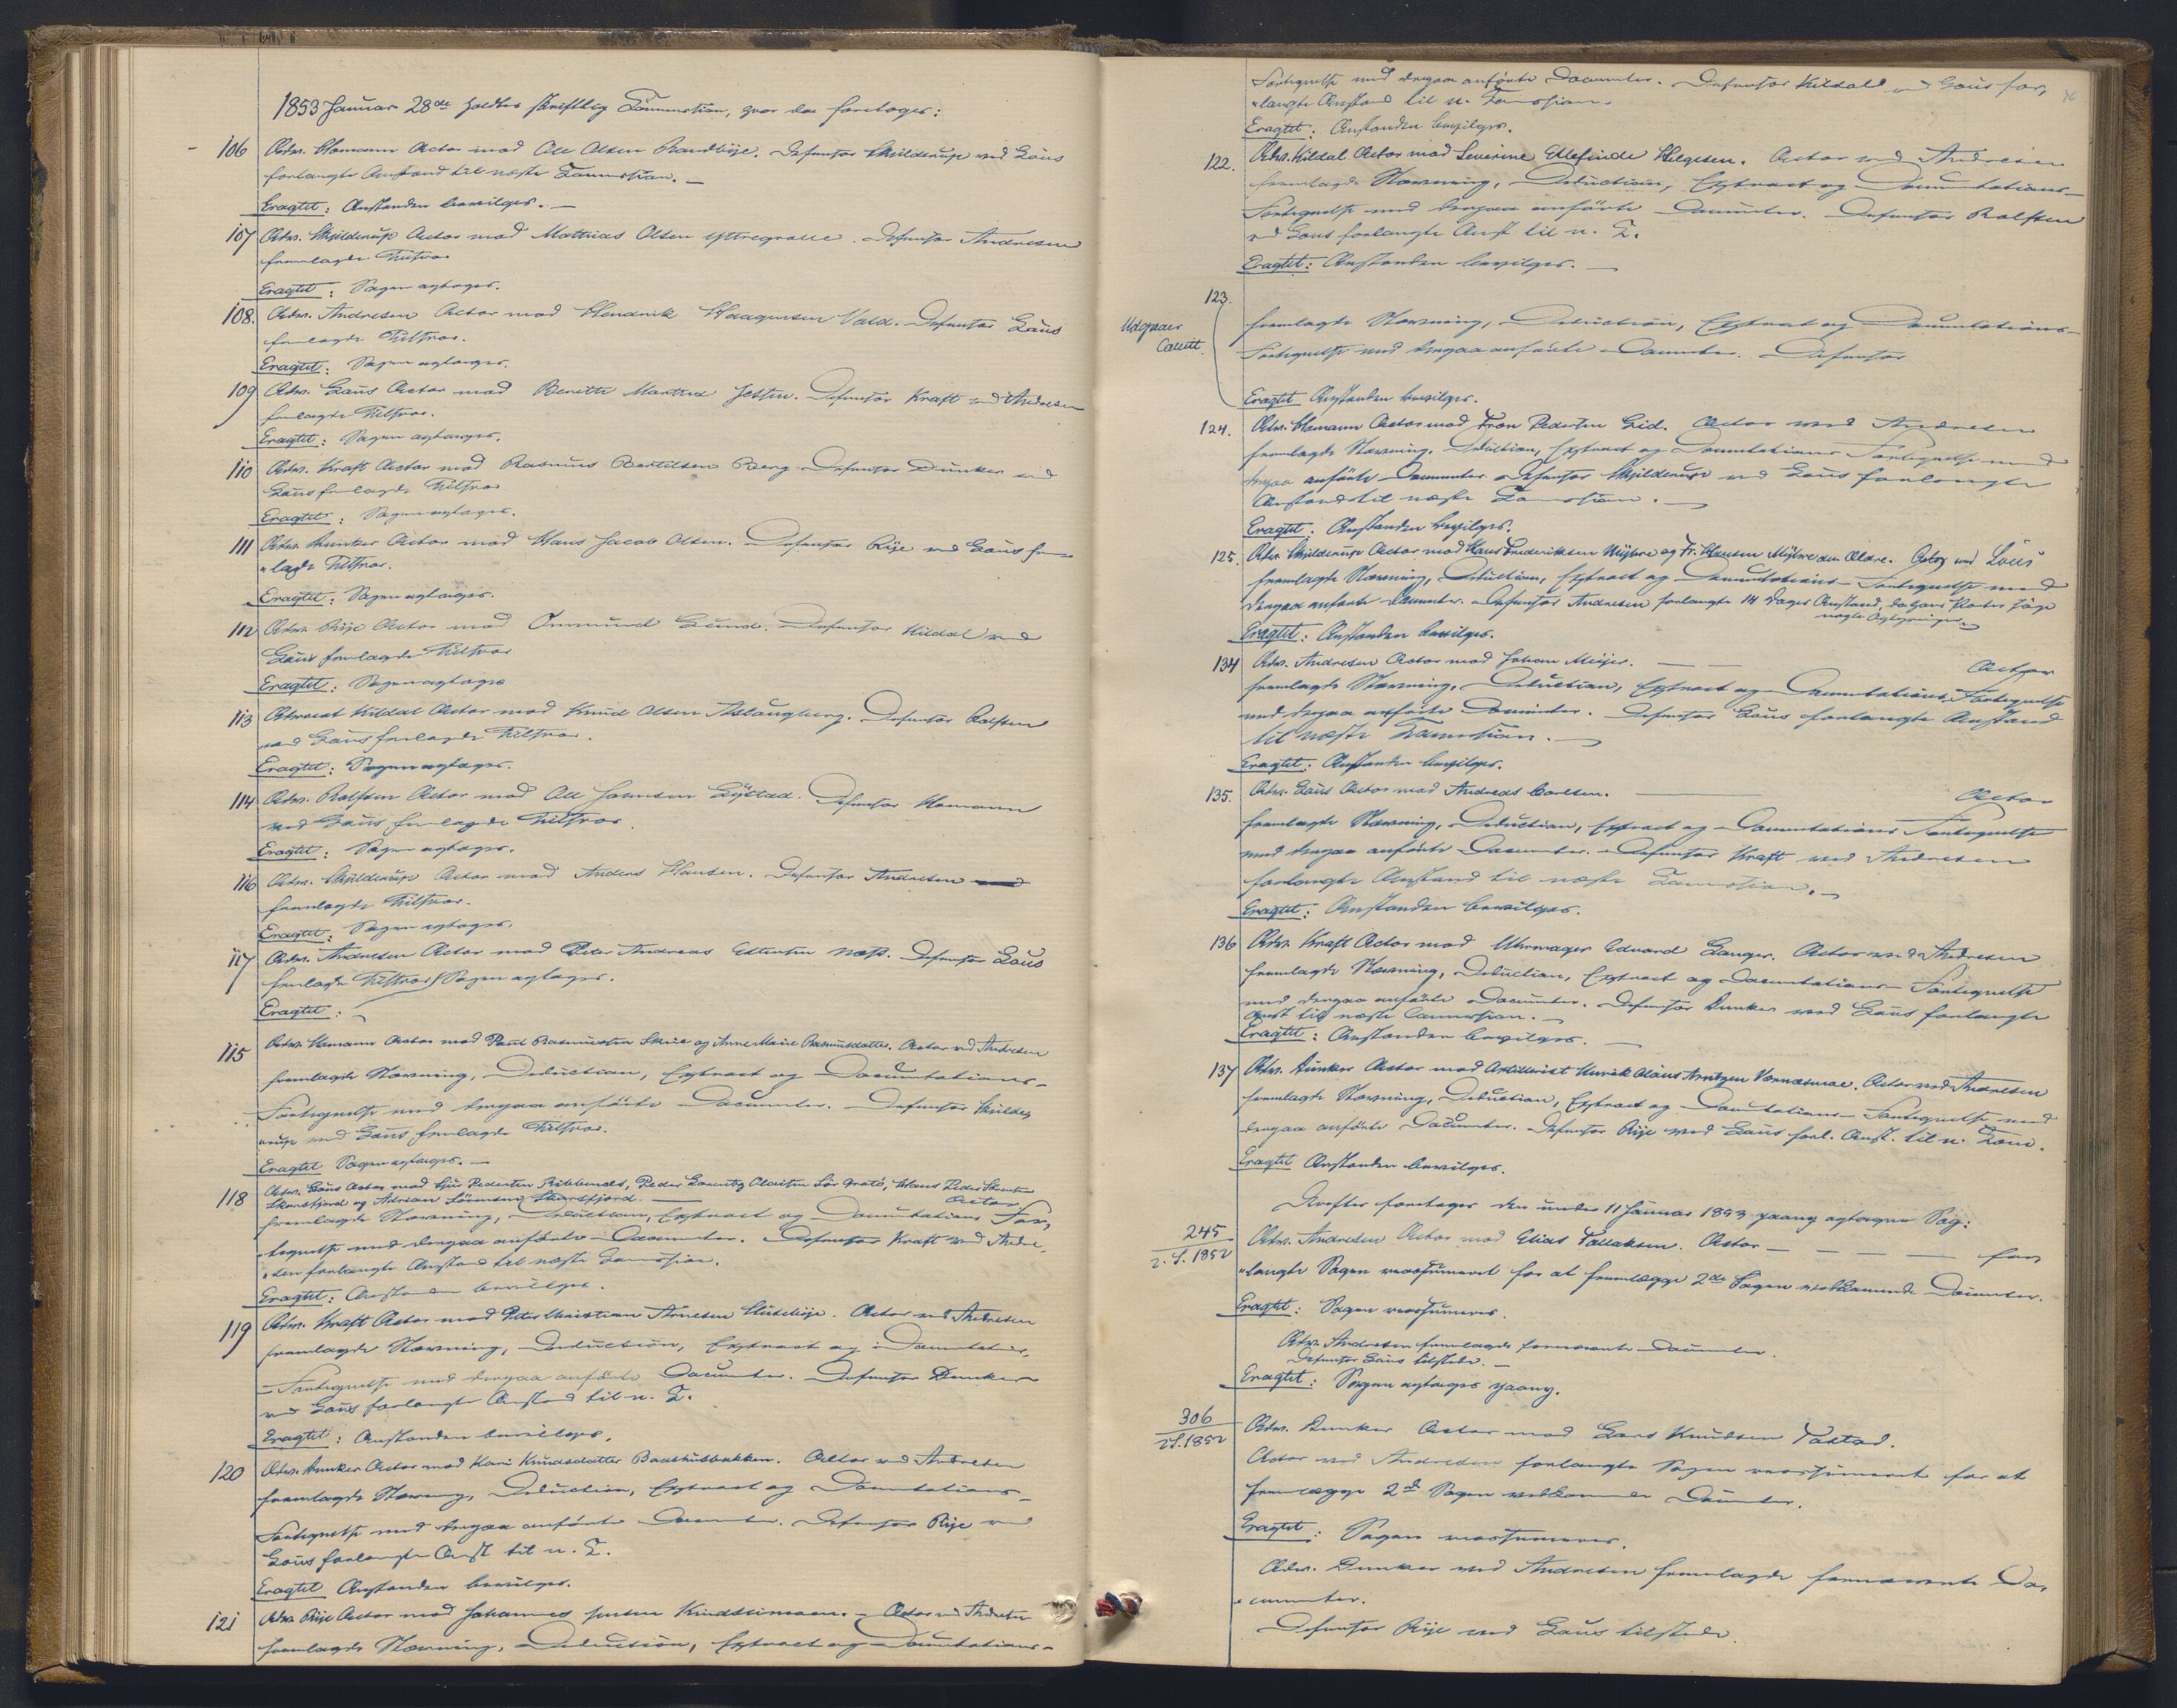 1853 Januar 28de holdtes skriftlig Lammession, hvor da foretoges:
106 Adv. Homann Actor mod Ole Olsen Randbye. Defensor Skjilderup ved Lous
forlangte Anstand til næste Lammession. —
Eragtet: Anstanden bevilges. —
107 Adv. Skjilderup Actor mod Mathias Olsen Yttregrove. Defensor Andresen
fremlagde Tilsvar
Eragtet: Sagen optages.
108. Adv. Andresen Actor mod Hendrik Haagensen Vold. Defensor Lous
fremlagde Tilsvar.
Eragtet: Sagen optages.
109 Adv. Lous Actor mod Berethe Martha Jessen. Defensor Kraft ved Andresen
fremlagde Tilsvar.
Eragtet: Sagen optages.
110 Adv. Kraft Actor mod Rasmus Bertilsen Berg. Defensor Dunker ved
Lous fremlagde Tilsvar
Eragtet: Sagen optages.
111 Adv. Dunker Actor mod Hans Jacob Olsen. Defensor Rije ved Lous frem
„lagde Tilsvar.
Eragtet: Sagen optages.
112 Adv. Rije Actor mod Ommund Lund. Defensor Kildal ved
Lous fremlagde Tilsvar
Eragtet: Sagen optages
113 Advocat Kildal Actor mod Knud Olsen Aslaugberg. Defensor Rolfsen
ved Lous fremlagde Tilsvar.
Eragtet: Sagen optages.
114 Adv. Rolfsen Actor mod Ole Jonsen Lÿstad. Defensor Homann
ved Lous fremlagde Tilsvar.
Eragtet: Sagen optages.
116 Adv. Skjilderup Actor mod Anders Hansen. Defensor Andresen
fremlagde Tilsvar.
Eragtet: Sagen optages.
117 Adv. Andresen Actor mod Peter Andreas Ellertsen Næss. Defensor Lous
fremlagde Tilsvar Sagen optages.
Eragtet:
115 Adv. Homann Actor mod Poul Rasmussen Skrue og Anne Marie Rasmusdatter. Actor ved Andresen
fremlagde Stævning, Deduction, Extract og Documentations-
Fortegnelse med derpaa anførte Documenter. Defensor Skjilde,
„rup ved Lous fremlagde Tilsvar.
Eragtet Sagen optages. —
118 Adv. Lous Actor mod Pedersen Peder Lorentz Hans Peder
og Adrian Sørensen Skarsfjord. — Actor
fremlagde Stævning, Deduction, Extract og Documentations For,
„tegnelse med derpaa anførte Documenter. Defensor Kraft ved Andre,
„sen forlangte Anstand til næste Lamession.
Eragtet: Anstanden bevilges.
119 Adv. Kraft Actor mod Peter Christian Arnesen Actor ved Andresen
fremlagde Stævning, Deduction, Extract og Documentations,
— Fortegnelse med derpaa anførte Documenter. Defensor Dunker
ved Lous forlangte Anstand til n. L.
Eragtet: Anstanden bevilges.
120 Adv. Dunker Actor mod Kari Knudsdatter Baashusbakken. Actor ved Andresen
fremlagde Stævning, Deduction, Extract og Documentations-
Fortegnelse med derpaa anførte Documenter. Defensor Rije ved
Lous forlangte Anst til n. L.
Eragtet Anstanden bevilges.
121 Adv. Rije Actor mod Johannes Jensen Kindstimoen. — Actor ved Andresen
fremlagde Stævning, Deduction, Extract og Documentations-
Fortegnelse med derpaa anførte Documenter. Defensor Kildal ved Lous for,
„langte Anstand til n. Lamession.
Eragtet: Anstanden bevilges.
122. Adv. Kildal Actor mod Severine Ellefinde Helgesen. Actor ved Andresen
fremlagde Stævning, Deduction, Extract og Documentations-
Fortegnelse med derpaa anførte Documenter. Defensor Rolfsen
ved Lous forlangte Anst. til n. L.
Eragtet: Anstanden bevilges. —
123.
Udgaaer
fremlagde Stævning, Deduction, Extract og Documentations-
Fortegnelse med derpaa anførte Documenter. Defensor
Eragtet Anstanden bevilges.
124. Adv. Homann Actor mod Tron Pedersen Lid. Actor ved Andresen
fremlagde Stævning, Deduction, Extract og Documentations Fortegnelse med
derpaa anførte Documenter. Defensor Skjilderup ved Lous forlangte
Anstand til næste Lamession. —
Eragtet: Anstanden bevilges.
125. Adv. Skjilderup Actor mod Hans Frederiksen Mÿhre og Fr. Hansen Mÿhre den Ældre. Actor ved Lous
fremlagde Stævning, Deduction, Extract og Documentations- Fortegnelse med
derpaa anførte Documenter. Defensor Andresen forlangte 14 Dages Anstand,
nogle Oplysninger. —
Eragtet: Anstanden bevilges.
134 Adv. Andresen Actor mod Johan Meijer. — — Actor
fremlagde Stævning, Deduction, Extract og Documentations Fortegnelse
med derpaa anførte Documenter. Defensor Lous forlangte Anstand
til næste Lamession. —
Eragtet: Anstanden bevilges.
135. Adv. Lous Actor mod Andreas Carlsen. — Actor
fremlagde Stævning, Deduction, Extract og Documentations Fortegnelse
med derpaa anførte Documenter. Defensor Kraft ved Andresen
forlangte Anstand til næste Lamession. —
Eragtet: Anstanden bevilges.
136 Adv. Kraft Actor mod Uhrmager Edvard Langer. Actor ved Andresen
fremlagde Stævning, Deduction, Extract og Documentations- Fortegnelse
med derpaa anførte Documenter. Defensor Dunker ved Lous forlangte
Anst til næste Lamession. —
Eragtet: Anstanden bevilges. —
137 Adv. Dunker Actor mod Artillerist Henrik Olaus Arntzen Værnæsmoe. Actor ved Andresen
fremlagde Stævning, Deduction, Extract og Documentations- Fortegnelse med
derpaa anførte Documenter. Defensor Rije ved Lous forl. Anst. til n. Lam.
Eragtet Anstanden bevilges.
Derefter foretoges den under 11 Januar 1853 paany optagne Sag:
245
2. S. 1852
Adv. Andresen Actor mod Elias Tallaksen. Actor — — — for,
„langte Sagen reassumeret for at fremlægge 2de Sagen vedkommende Documenter.
Eragtet: Sagen reassumeres.
Adv. Andresen fremlagde fornævnte Documenter.
Defensor Lous tilstede. —
Eragtet: Sagen optages paany.
306
2 S. 1852
Adv. Dunker Actor mod Lars Knudsen Tastad.
Actor ved Andresen forlangte Sagen reassumeret for at
fremlægge 2de Sagen vedkommende Documenter.
Eragtet: Sagen reassumeres.
Adv. Dunker ved Andresen fremlagde fornævnte Do,
„cumenter.
Defensor Rije ved Lous tilstede.